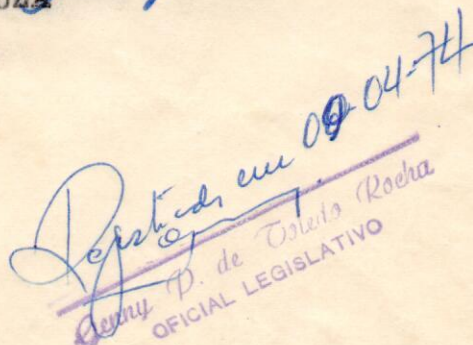 Registrado em 09-04-74
Genny P. de Toledo Rocha
OFICIAL LEGISLATIVO